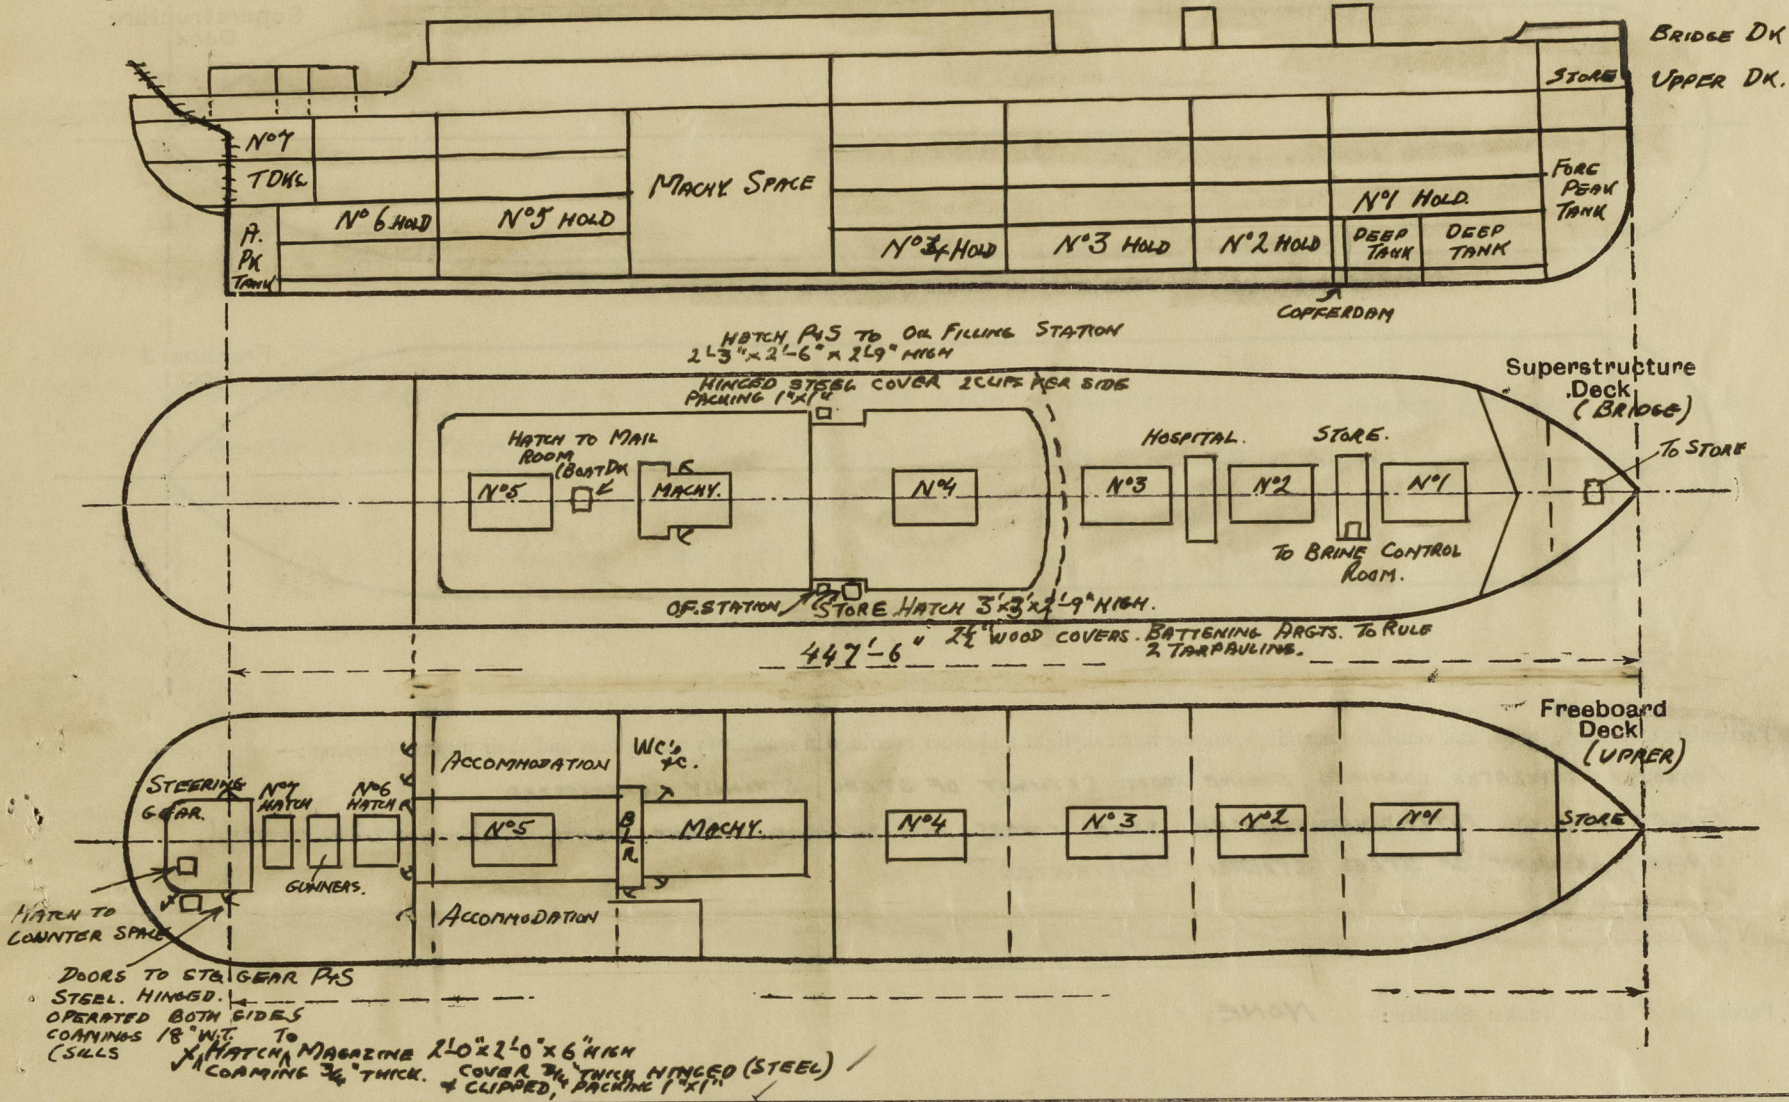 BRIDGE DK
STORE
UPPER DK.
No 7
TDKs
MACHY. SPACE
FORE
PEAK
TANK
No 6 HOLD
No 5 HOLD
No 1 HOLD.
A.
PK
TANK
No 4 HOLD
No 3 HOLD
No 2 HOLD
DEEP
TANK
DEEP
TANK
COFFERDAM
HATCH P&S TO OIL FILLING STATION
2'-3" x 2'-6" x 2'-9" HIGH
HINGED STEEL COVER 2 CLIPS PER SIDE
PACKING 1" x 1"
Superstructure
Deck
(BRIDGE)
HATCH TO MAIL
ROOM
(BOAT DK
HOSPITAL.
STORE.
TO STORE
No 5
MACHY.
No 4
No 3
No 2
No 1
TO BRINE CONTROL
ROOM.
O.F. STATION
STORE HATCH 3' x 3' x 2'-9" HIGH.
2½" WOOD COVERS. BATTENING ARGTS. TO RULE
2 TARPAULINS.
447'-6"
Freeboard
Deck
(UPPER)
STEERING
GEAR.
No 7
HATCH
No 6
HATCH
ACCOMMODATION
WC's
&c.
No 5
BLR
MACHY.
No 4
No 3
No 2
No 1
STORE
GUNNERS.
HATCH TO
COUNTER SPACE
ACCOMMODATION
DOORS TO STG GEAR P&S
STEEL. HINGED.
OPERATED BOTH SIDES
COAMINGS 18" W.T. TO
(SILLS
X HATCH MAGAZINE 2'-0" x 2'-0" x 6" HIGH
COAMING ¾" THICK. COVER ¾" THICK HINGED (STEEL)
& CLIPPED, PACKING 1" x 1"
NONE